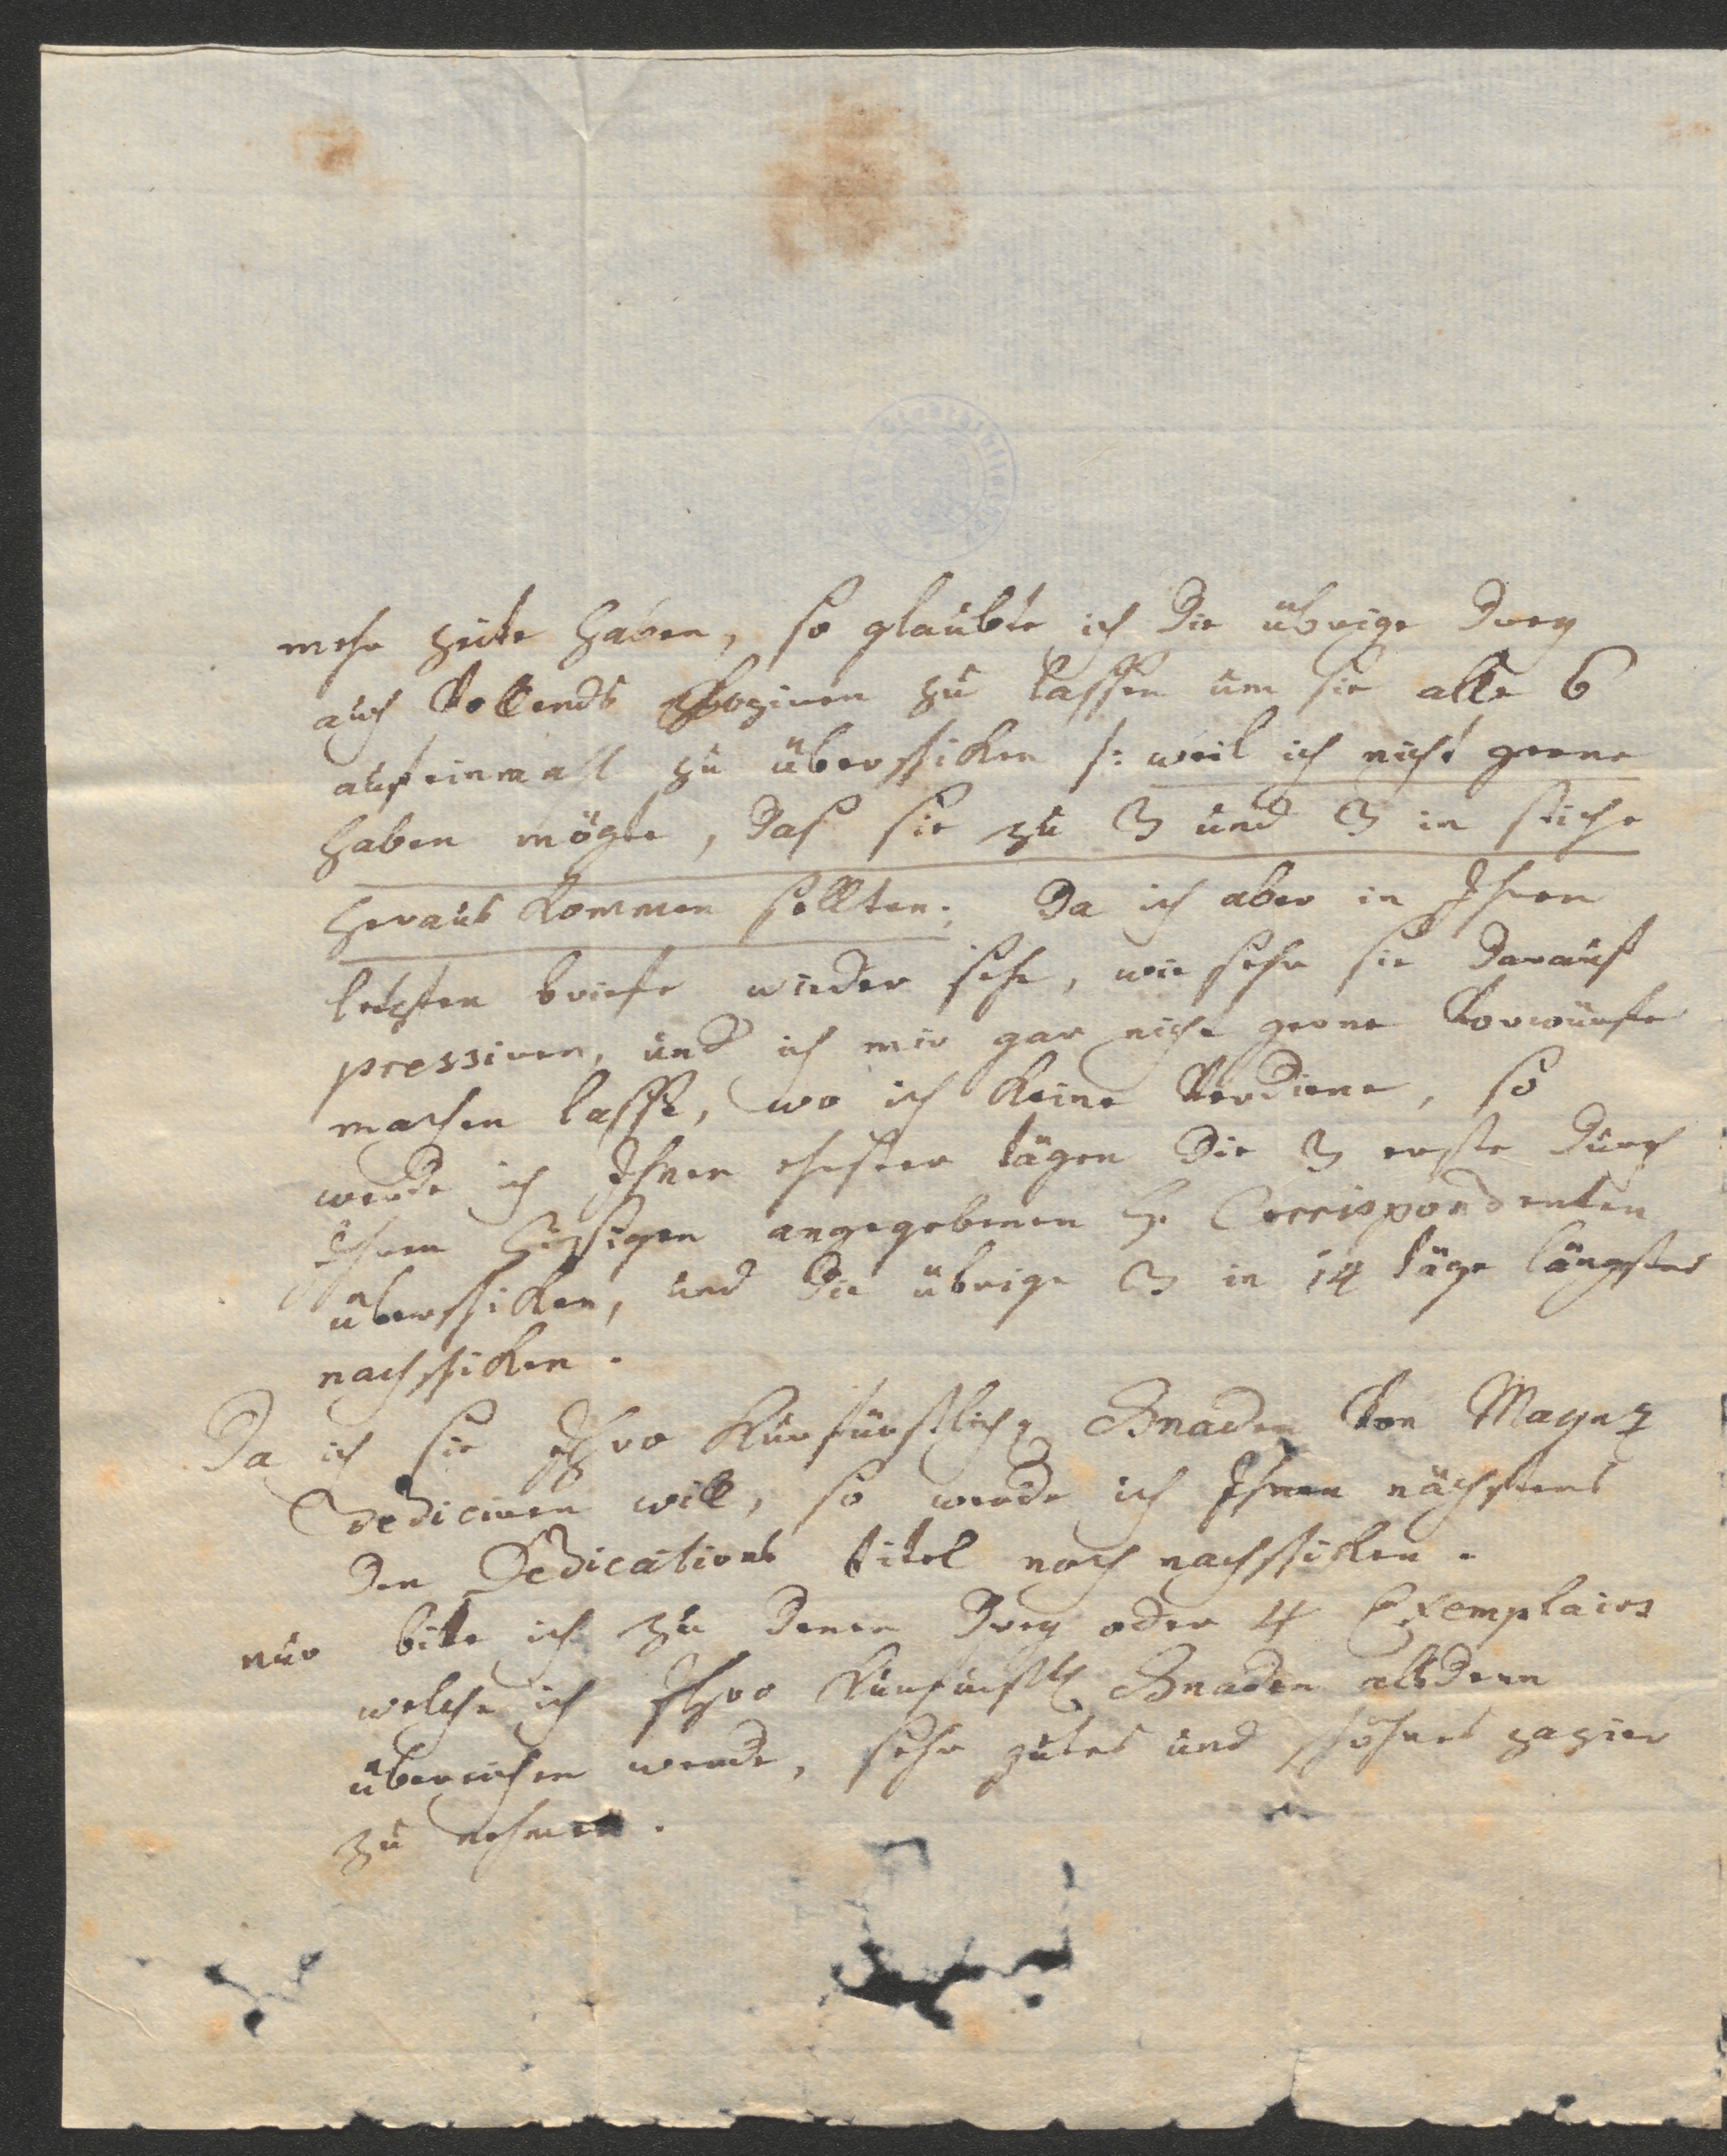 mehr Zeite haben, so glaubte ich die übrige drey
auch vollends Copiren zu lassen um sie alle 6
auf einmahl zu überschicken /: weil ich nicht geerne
haben mögte, daß sie zu 3 und 3 in stiche
heraus kommen sollten. Da ich aber in Ihren
letzten briefe wieder sehe, wie sehr sie darauf
pressiren, und ich mir gar nicht gerne Vorwürfe
machen lasse, wo ich keine Verdiene, so
werde ich Ihnen ehester tägen die 3 erste durch
Ihren hiesigen angegebenen H. Corrispondenten
überschicken, und die übrige 3 in 14 täge längstens
nachschicken.
Da ich sie Ihro Kurfürstliche Gnaden von Maynz
Dediciren will, so werde ich Ihnen nächstens
den Dedications titel noch nachschicken.
nur bitte ich zu denen drey oder 4 Exemplairs
welche ich Ihro Kurfürstl Gnaden alsdenn
überreichen werde, sehr gutes und schönes papier
zu nehmen.